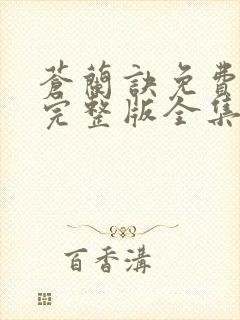 蒼蘭訣免費
完整版全集
百香溝